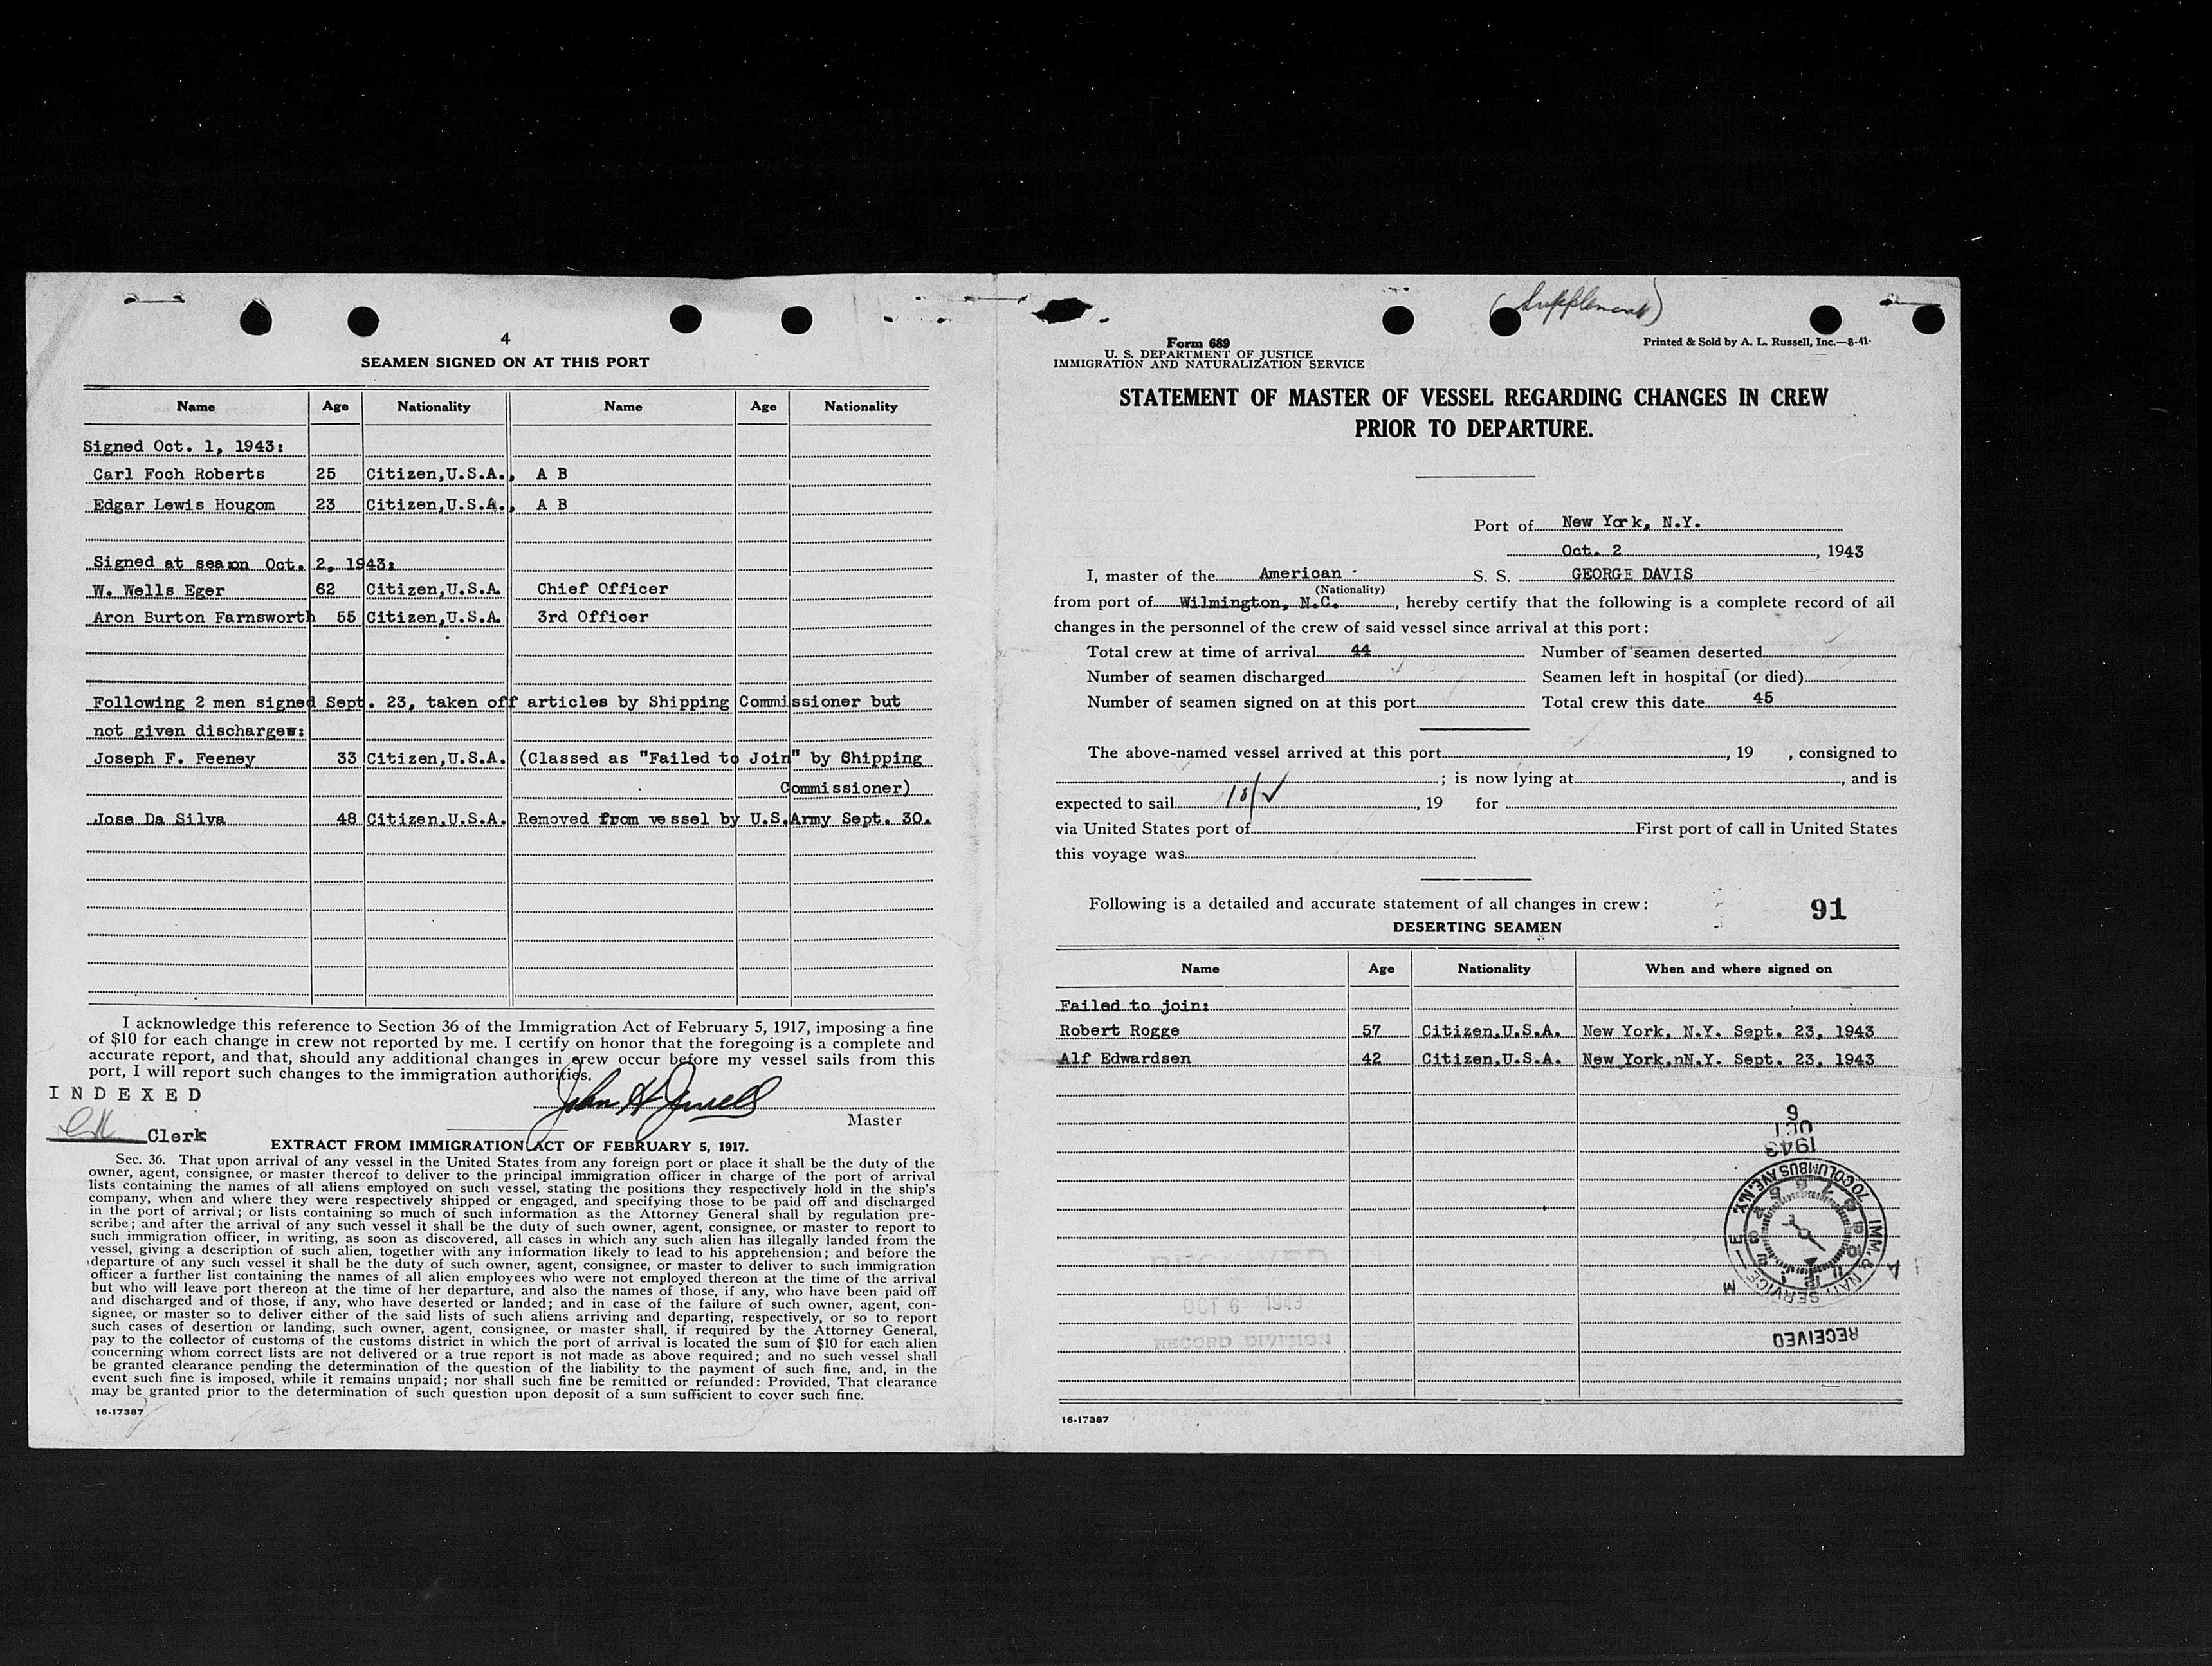 4
SEAMEN SIGNED ON AT THIS PORT
Name Age Nationality Name Age Nationality
Signed Oct. 1, 1943:
Carl Foch Roberts 25 Citizen,U.S.A., A B
Edgar Lewis Hougom 23 Citizen,U.S.A., A B
Signed at seaon Oct. 2, 1943:
W. Wells Eger 62 Citizen,U.S.A. Chief Officer
Aron Burton Farnsworth 55 Citizen,U.S.A. 3rd Officer
Following 2 men signed Sept. 23, taken off articles by Shipping Commissioner but
not given discharges:
Joseph F. Feeney 33 Citizen,U.S.A. (Classed as "Failed to Join" by Shipping
Commissioner)
Jose Da Silva 48 Citizen,U.S.A. Removed from vessel by U.S.Army Sept. 30.
I acknowledge this reference to Section 36 of the Immigration Act of February 5, 1917, imposing a fine
of $10 for each change in crew not reported by me. I certify on honor that the foregoing is a complete and
accurate report, and that, should any additional changes in crew occur before my vessel sails from this
port, I will report such changes to the immigration authorities.
INDEXED
John H
Master
Clerk
EXTRACT FROM IMMIGRATION ACT OF FEBRUARY 5, 1917.
Sec. 36. That upon arrival of any vessel in the United States from any foreign port or place it shall be the duty of the
owner, agent, consignee, or master thereof to deliver to the principal immigration officer in charge of the port of arrival
lists containing the names of all aliens employed on such vessel, stating the positions they respectively hold in the ship's
company, when and where they were respectively shipped or engaged, and specifying those to be paid off and discharged
in the port of arrival; or lists containing so much of such information as the Attorney General shall by regulation pre-
scribe; and after the arrival of any such vessel it shall be the duty of such owner, agent, consignee, or master to report to
such immigration officer, in writing, as soon as discovered, all cases in which any such alien has illegally landed from the
vessel, giving a description of such alien, together with any information likely to lead to his apprehension; and before the
departure of any such vessel it shall be the duty of such owner, agent, consignee, or master to deliver to such immigration
officer a further list containing the names of all alien employees who were not employed thereon at the time of the arrival
but who will leave port thereon at the time of her departure, and also the names of those, if any, who have been paid off
and discharged and of those, if any, who have deserted or landed; and in case of the failure of such owner, agent, con-
signee, or master so to deliver either of the said lists of such aliens arriving and departing, respectively, or so to report
such cases of desertion or landing, such owner, agent, consignee, or master shall, if required by the Attorney General,
pay to the collector of customs of the customs district in which the port of arrival is located the sum of $10 for each alien
concerning whom correct lists are not delivered or a true report is not made as above required; and no such vessel shall
be granted clearance pending the determination of the question of the liability to the payment of such fine, and, in the
event such fine is imposed, while it remains unpaid; nor shall such fine be remitted or refunded: Provided, That clearance
may be granted prior to the determination of such question upon deposit of a sum sufficient to cover such fine.
16-17387
(Supplement)
Form 689
U. S. DEPARTMENT OF JUSTICE
IMMIGRATION AND NATURALIZATION SERVICE
Printed & Sold by A. L. Russell, Inc.—8-41
STATEMENT OF MASTER OF VESSEL REGARDING CHANGES IN CREW
PRIOR TO DEPARTURE.
Port of New York, N.Y.
Oct. 2, 1943
I, master of the American S. S. GEORGE DAVIS
(Nationality)
from port of Wilmington, N.C., hereby certify that the following is a complete record of all
changes in the personnel of the crew of said vessel since arrival at this port:
Total crew at time of arrival 44 Number of seamen deserted
Number of seamen discharged Seamen left in hospital (or died)
Number of seamen signed on at this port Total crew this date 45
The above-named vessel arrived at this port, 19 , consigned to
; is now lying at, and is
expected to sail 10/2, 19 for
via United States port of First port of call in United States
this voyage was
Following is a detailed and accurate statement of all changes in crew:
91
DESERTING SEAMEN
Name Age Nationality When and where signed on
Failed to join:
Robert Rogge 57 Citizen,U.S.A. New York, N.Y. Sept. 23, 1943
Alf Edwardsen 42 Citizen,U.S.A. New York,nN.Y. Sept. 23, 1943
6
OCT
1943
70 COLUMBUS AVE. N.Y.
IMM. & NAT. SERVICE
RECEIVED
RECEIVED
OCT 6 1943
RECORD DIVISION
16-17387